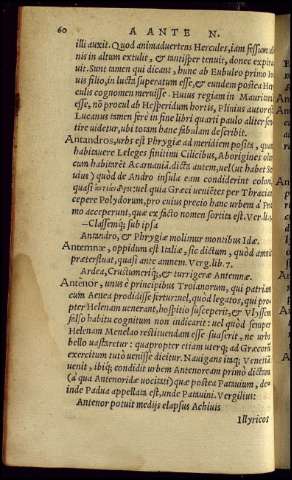 60 A ANTE N.
illi auxit. Quod animaduertens Hercules, iam fessum
nis in altum extulit, & tantisper tenuit, donec expira
uit. Sunt tamen qui dicant, hunc ab Eubuleo primo
uis filio, in luctu superatum esse, & eundem postea Her
culis cognomen meruisse. Huius regiam in Mauritani
esse, nõ procul ab Hesperidum hortis, Plinius autor
Lucanus tamen fere in fine libri quarti paulo aliter sen
tire uidetur, ubi totam hanc fabulam describit.
Antandros, urbs est Phrygiæ ad meridiem posita, quam
habituere Leleges finitimi Cilicibus, Aborigines
cum habitarēt Acarnaniā. dicta autem, uel (ut habet Se
uius) quòd de Andro insula eam condiderint coloni
quasi uel quia Græci ueniētes per Thracia
cepere Polydorum, pro cuius precio hanc urbem à
mo acceperunt, quæ ex facto nomen sortita est. Verg.
—Classemq́; sub ipsa
Antandro, & Phrygiæ molimur montibus Idæ.
Antemnæ, oppidum est Italiæ, sic dictum, quòd amnis
præterfluat, quasi ante amnem. Verg. lib. 7.
Ardea, Crustumeriq́;, & turrigeræ Antemnæ.
Antenor, unus è principibus Troianorum, qui patriam
cum Aenea prodidisse fertur: uel, quòd legatos, qui pro
pter Helenam uenerant, hospitio susceperit, & Vlyssem
falso habitu cognitum non indicarit: uel quòd semper
Helenam Menelao restituendam esse suaserit, ne urbs
bello uastaretur: quapropter etiam uterq; ad Græcorum
exercitum tutò uenisse dicitur. Nauigans inq; Venetiā
uenit, ibiq; condidit urbem Antenoream primo dictam
(à qua Antenoridæ uocitati) quæ postea Patauium, de
inde Padua appellata est, unde Patauini. Vergilius:
Antenor potuit medijs elapsus Achiuis
Illyricos